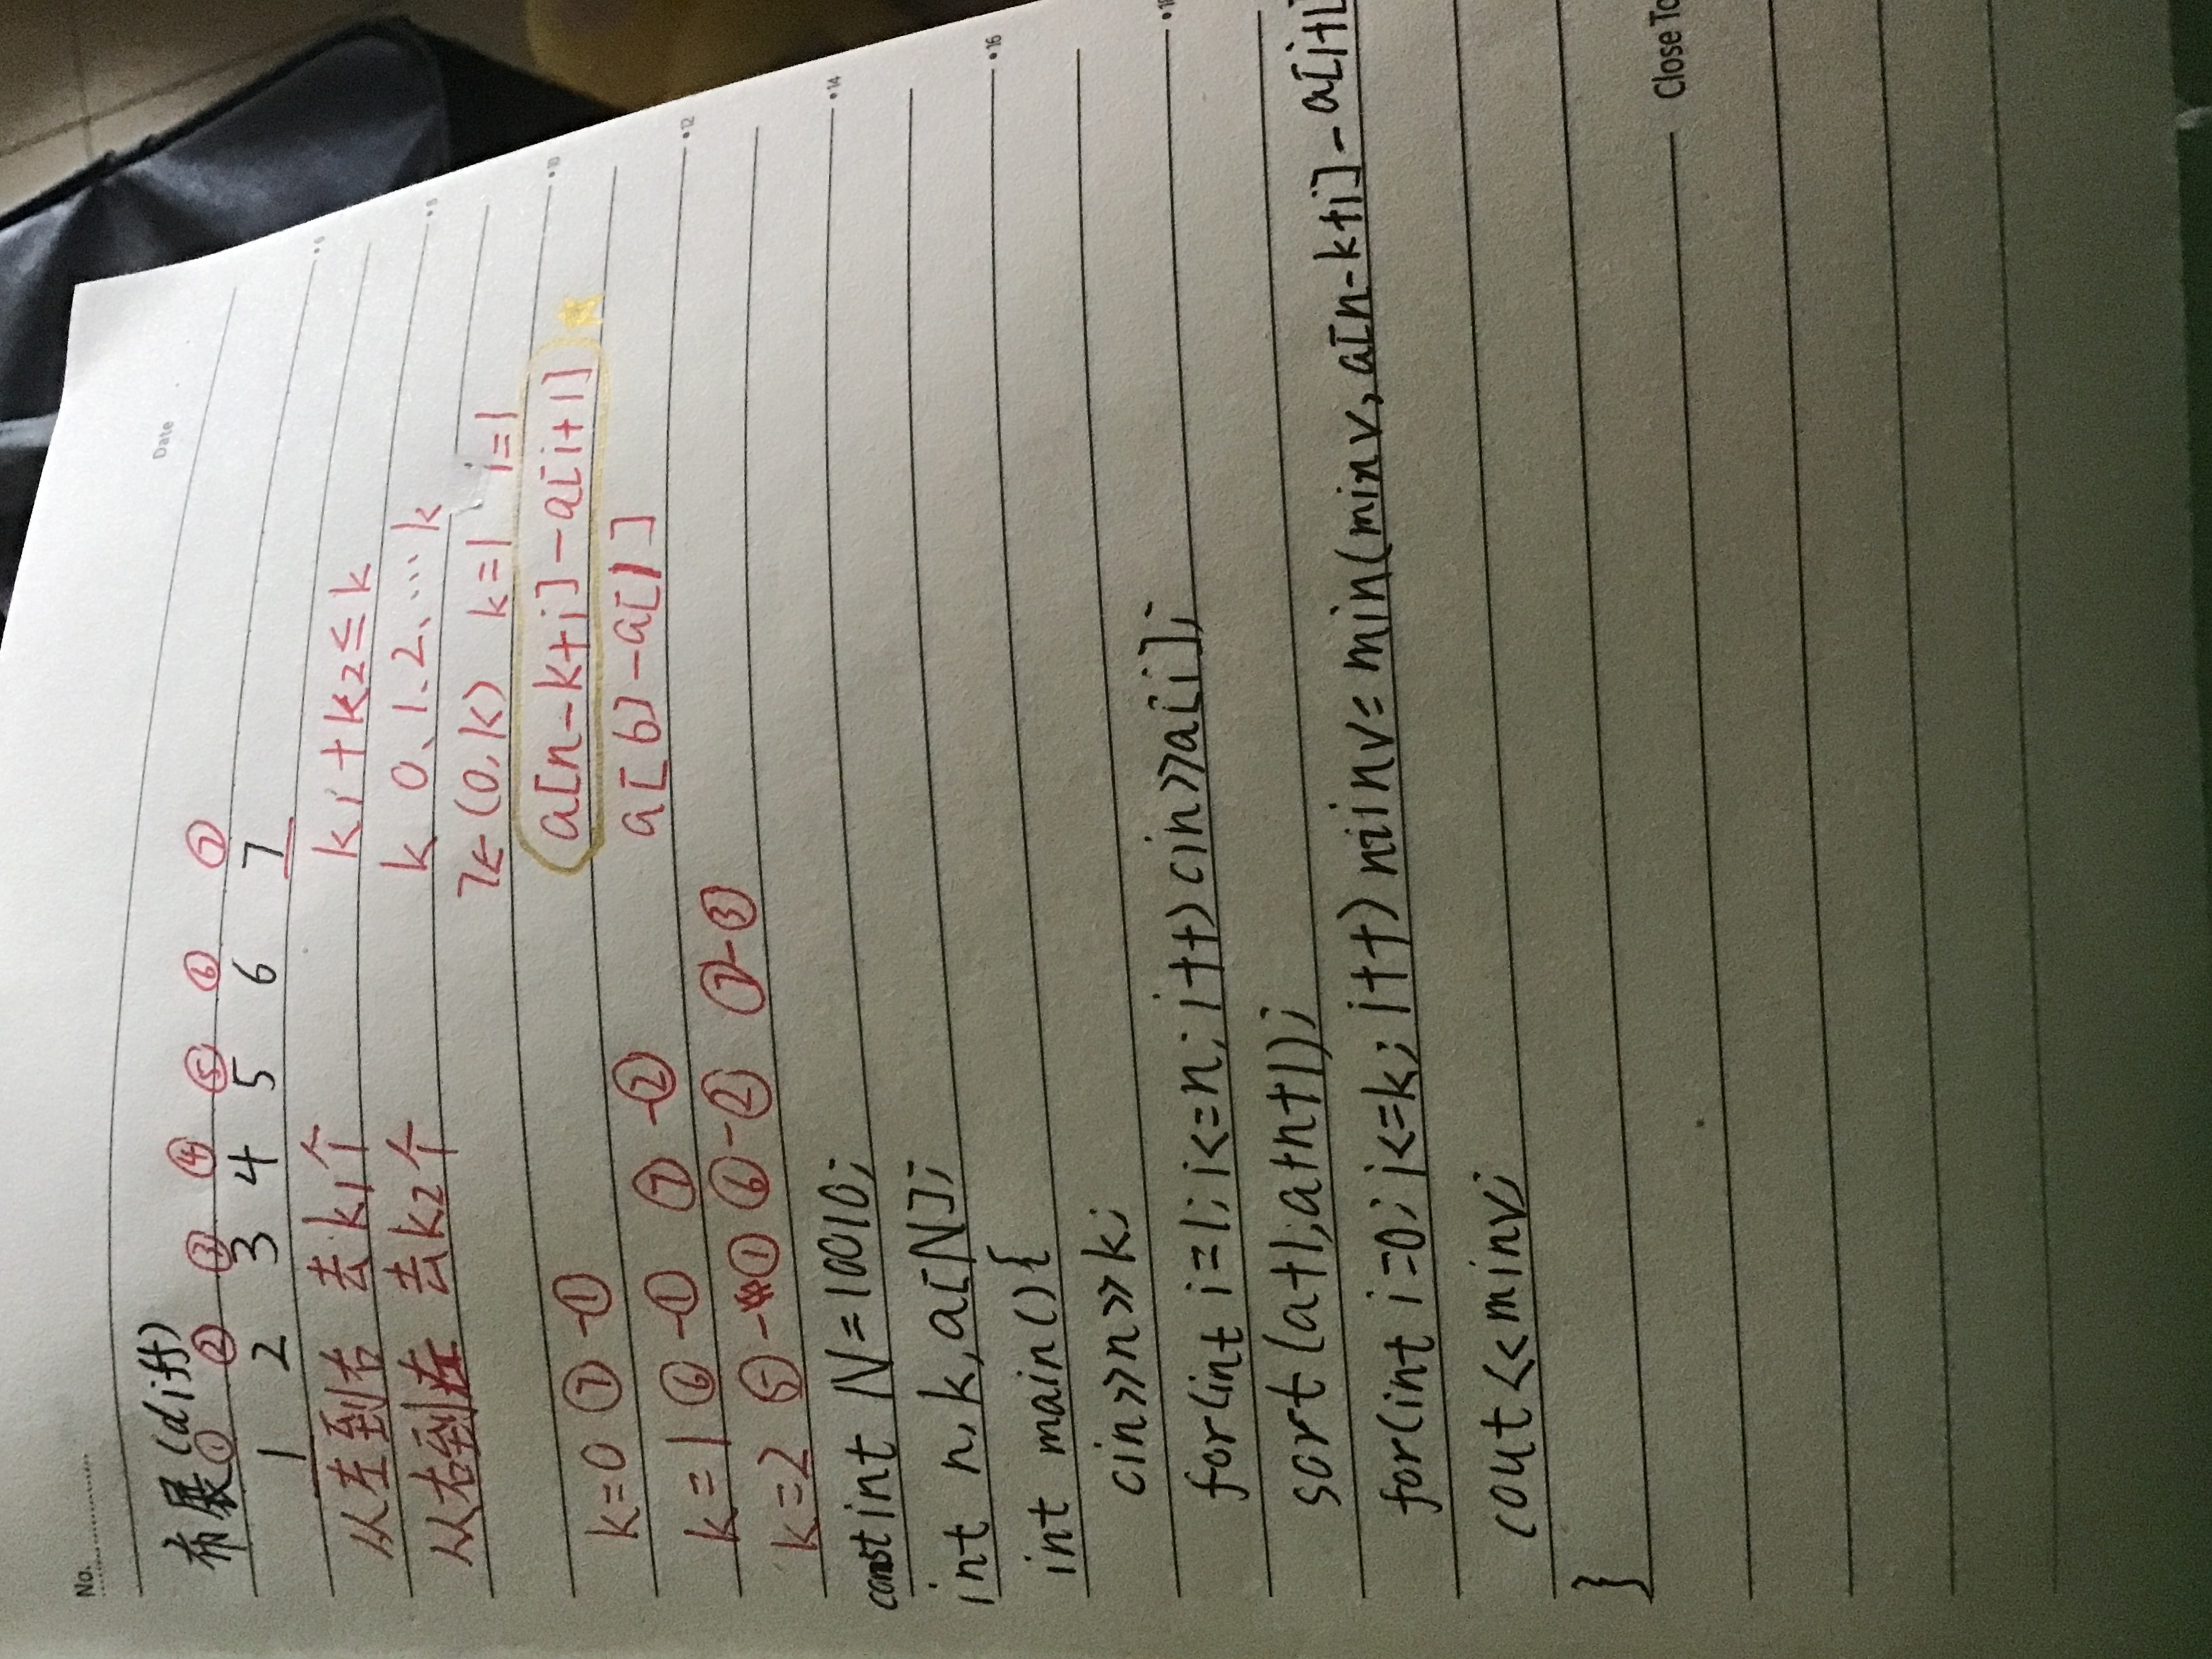 No.
Date
布展(diff)
① ② ③ ④ ⑤ ⑥ ⑦
1 2 3 4 5 6 7
从左到右 去k1个 k1+k2≤k
从右到左 去k2个 k 0、1、2、…k
7 (0,k) k=1 i=1
k=0 ⑦-① a[n-k+i]-a[i+1]
k=1 ⑥-① ⑦-② a[6]-a[1]
k=2 ⑤-① ⑥-② ⑦-③
const int N=10010;
int n,k,a[N];
int main(){
cin>>n>>k;
for(int i=1;i<=n;i++)cin>>a[i];
sort(a+1,a+n+1);
for(int i=0;i<=k;i++)minv=min(minv,a[n-k+i]-a[i+1
cout<<minv;
}
6
8
10
12
14
16
18
Close To